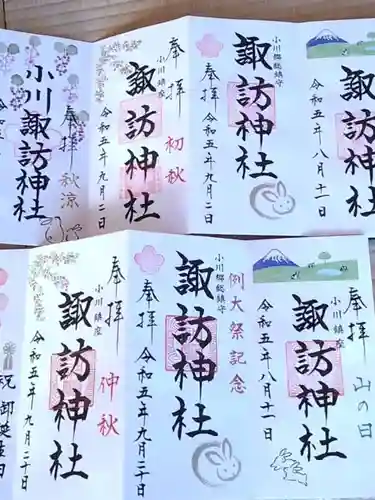 奉拝
小川諏訪神社
秋涼
令和
奉拝
小川鎮座
諏訪神社
初秋
令和五年九月二日
奉拝
小川郷総鎮守
諏訪神社
令和五年九月二日
小川鎮座
諏訪神社
令和五年八月十一
祝
奉拝
小川鎮座
諏訪神社
仲秋
令和五年九月二十日
奉拝
小川郷総鎮守
諏訪神社
例大祭記念
令和五年九月二日
奉拝
小川鎮座
諏訪神社
山の日
令和五年八月十一日